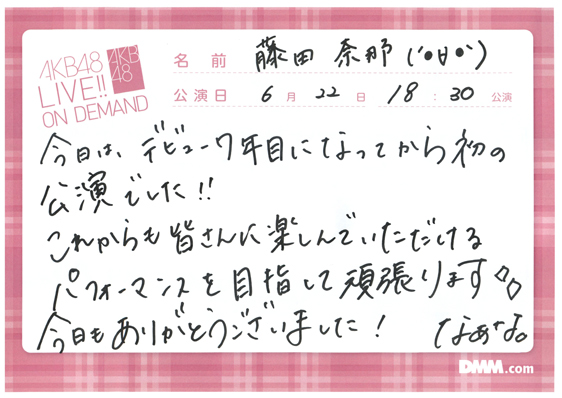 AKB48
LIVE!!
ON DEMAND
AKB
48
名前 藤田奈那 (´•日•`)
公演日 6月22日 18:30公演
今日は、デビュー7年目になってから初の
公演でした!!
これからも皆さんに楽しんでいただける
パフォーマンスを目指して頑張ります♢♢
今日もありがとうございました! なぁな。
DMM.com